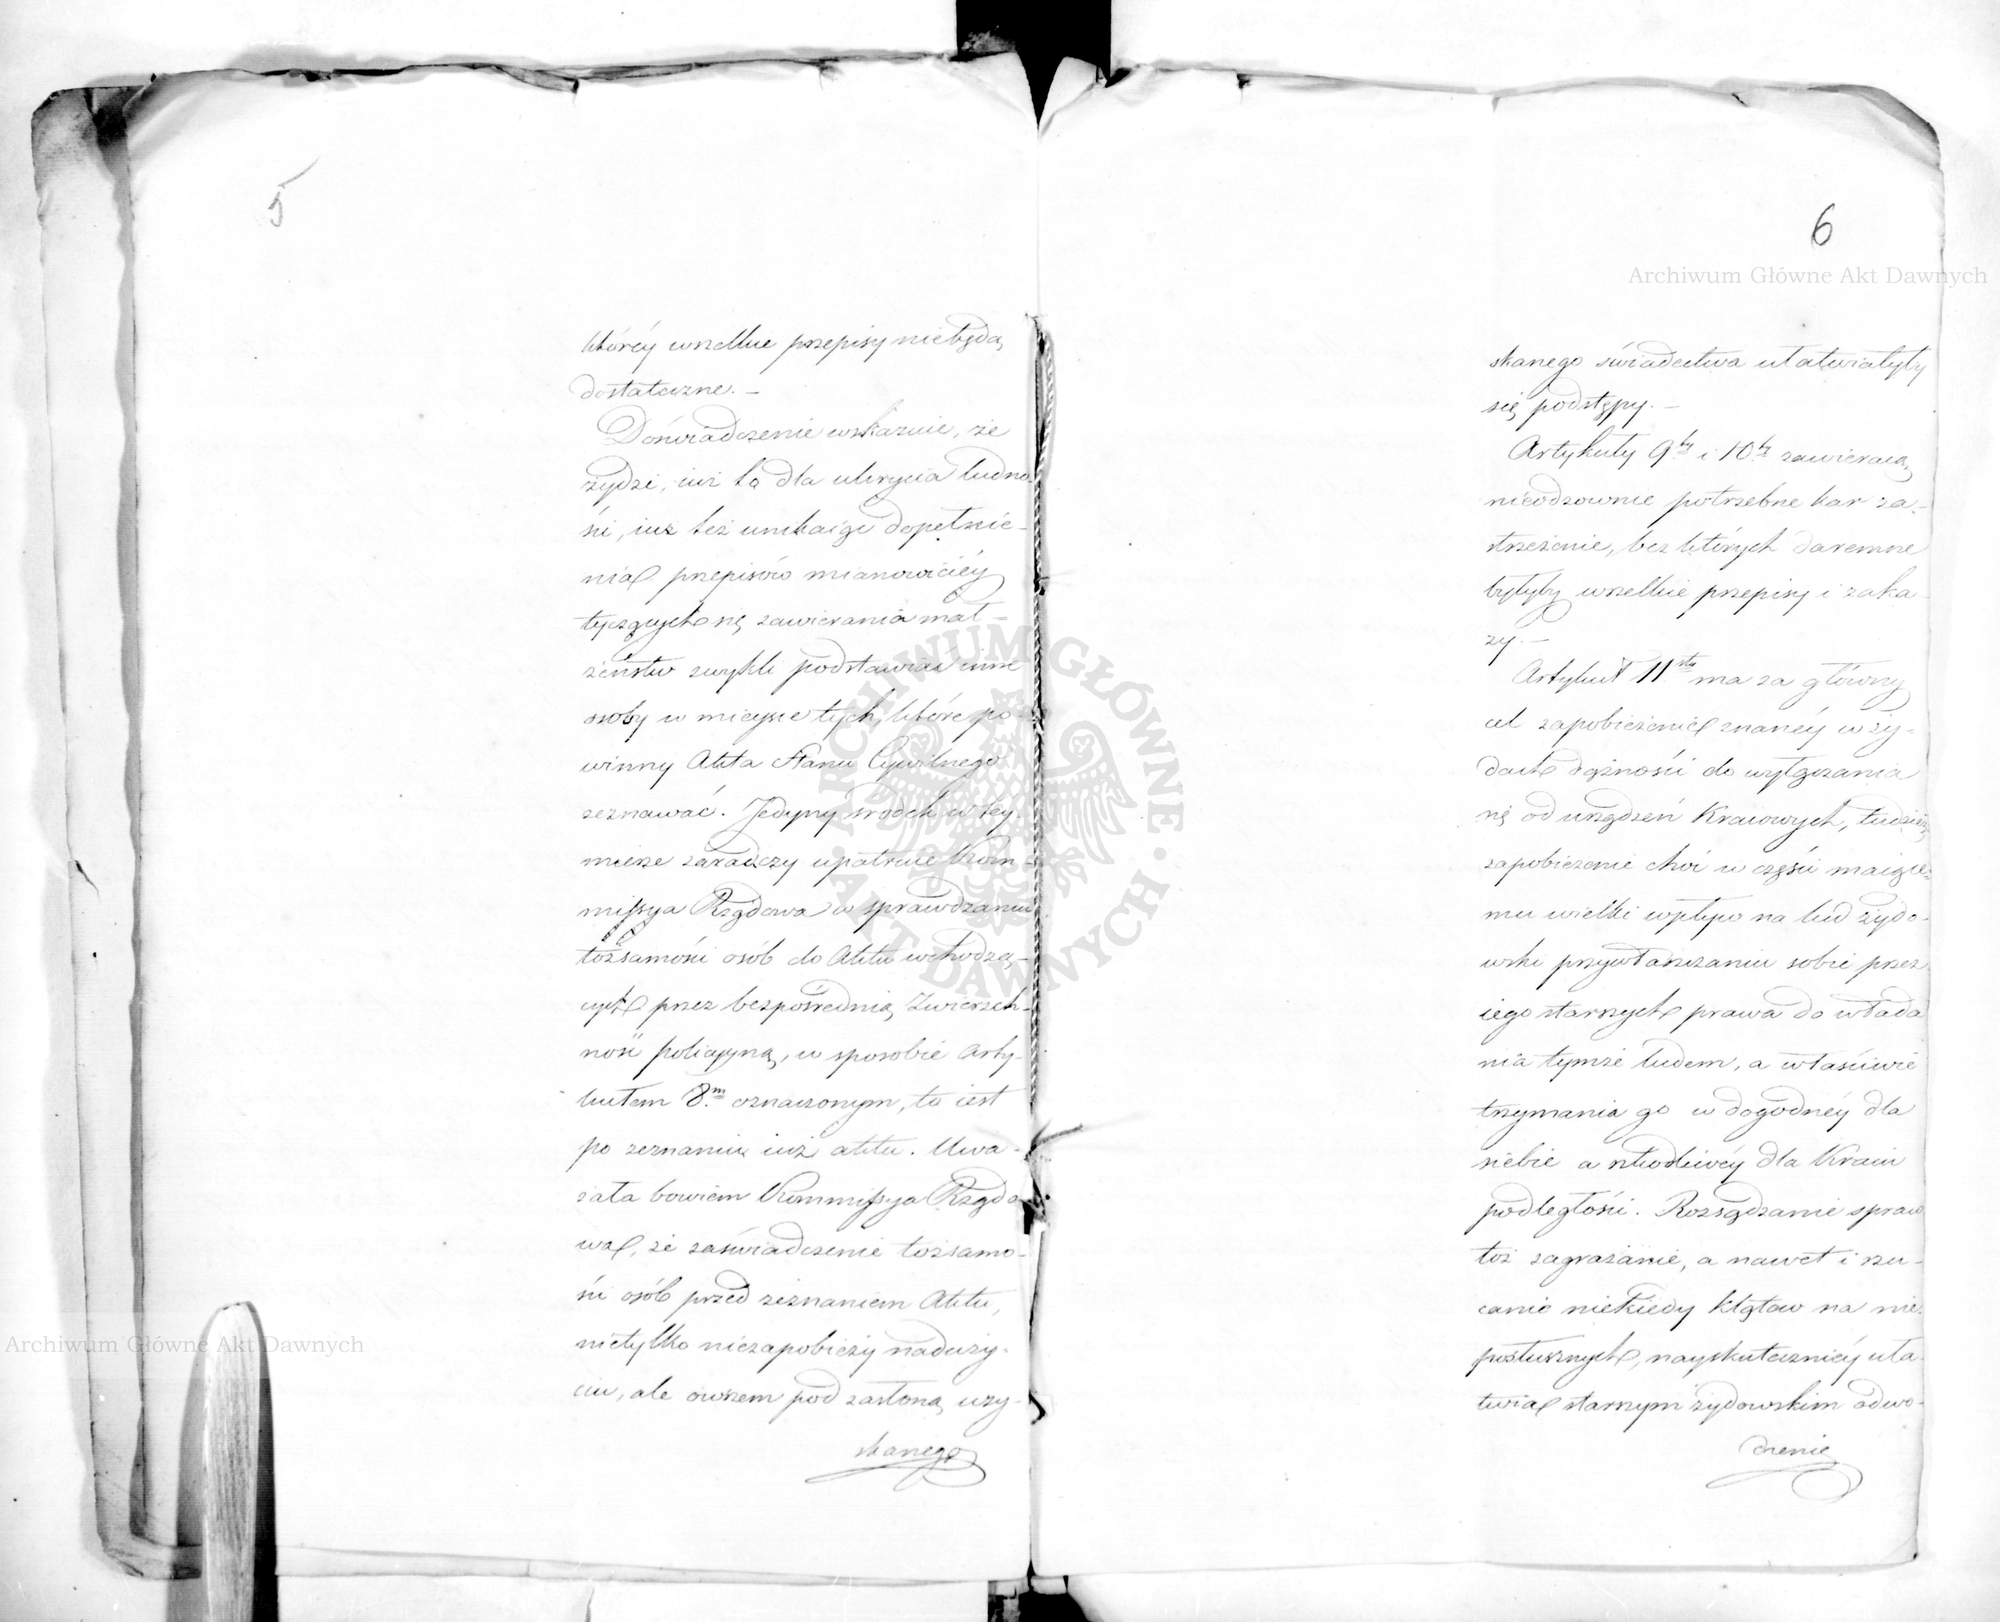 5
którey wszelkie przepisy niebędą
dostateczne. —
Doświadczenie wskazuie, że
żydzi, iuż to dla ukrycia ludno
ści, iuż też unikaiąc dopełnie-
nia przepisów mianowiciéy
tyczących się zawierania mał-
żeństw zwykli podstawiać inne
osoby w mieysce tych, które po-
winny Akta Stanu Cywilnego
zeznawać. Jedyny środek w tey
mierze zaradczy upatruie Kom-
missya Rządowa w sprawdzaniu
tożsamości osób do Aktu wchodzą-
cych przez bezpośrednią Zwierzch-
ność policyyną, w sposobie Arty-
kułem 8.m oznaczonym, to iest
po zeznaniu iuż aktu. Uwa-
żała bowiem Kommissya Rządo
wa, że zaświadczenie tożsamo-
ści osób przed zeznaniem Aktu,
nietylko niezapobieży naduży-
ciu, ale owszem pod zasłoną uzy-
skanego
6
Archiwum Główne Akt Dawnych
skanego świadectwa ułatwiałyby
się podstępy. —
Artykuły 9ty i 10ty zawieraią
nieodzownie potrzebne kar za-
strzeżenie, bez których daremne
byłyby wszelkie przepisy i zaka
zy. —
Artykuł 11sty ma za główny
cel zapobieżenie znanéy w ży-
dach dążności do wyłączania
się od urządzeń Kraiowych, tudzież
zapobieżenie choć w części maiące-
mu wielki wpływ na lud żydo-
wski przywłaszczaniu sobie przez
iego starszych prawa do włada
nia tymże ludem, a właściwie
trzymania go w dogodnéy dla
siebie a szkodliwéy dla Kraiu
podległości. Rozsądzanie spraw
toż zagrażanie, a nawet i rzu-
canie niekiedy klątew na nie-
posłusznych, nayskuteczniéy uła-
twia starszym żydowskim odwo-
dzenie
Archiwum Główne Akt Dawnych
ARCHIWUM GŁÓWNE · AKT DAWNYCH ·